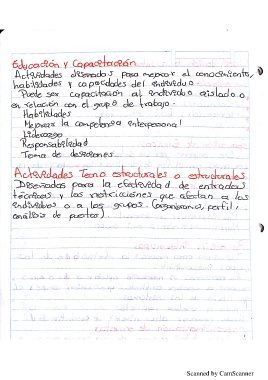 Educación y Capacitación
Actividades diseñadas para mejorar el conocimiento,
habilidades y capacidades del individuo.
Puede ser capacitación al individuo aislado o
en relación con el grupo de trabajo.
Habilidades
Mejorar la competencia interpersonal
Liderazgo
Responsabilidad
Toma de desiciones.
Actividades Tecno estructurales o estructurales
Diseñadas para la efectividad de entradas
técnicas y las restricciones que afectan a los
individuos o a los grupos. (organigramas, perfil,
análisis de puestos)
Scanned by CamScanner